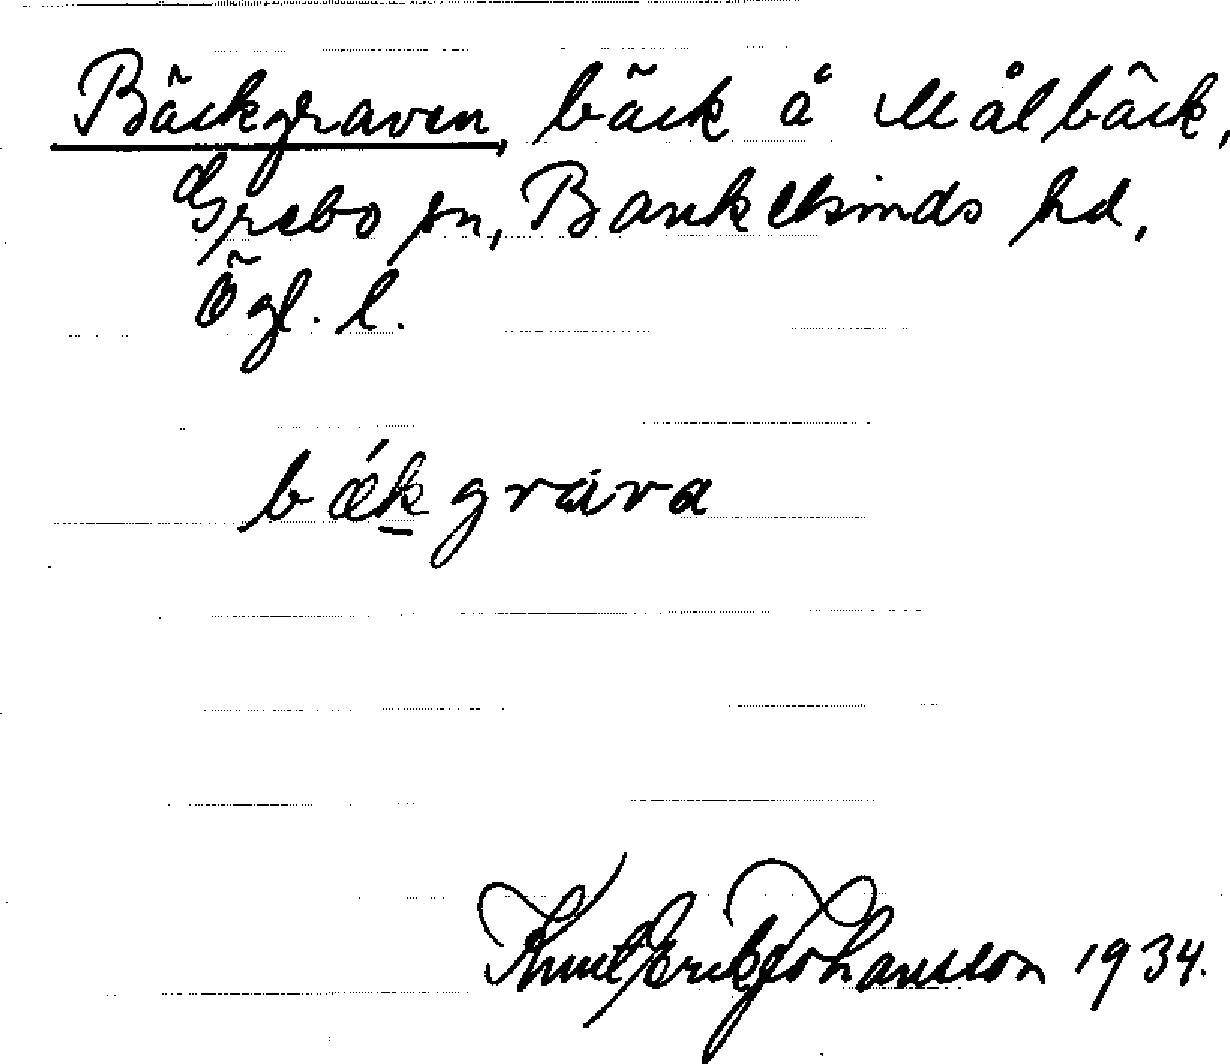 Bäckgraven, bäck å Målbäck,
Grebo sn, Bankekinds hd,
Ögl. l.
bǽkgrava
Knut Erik Johansson 1934.